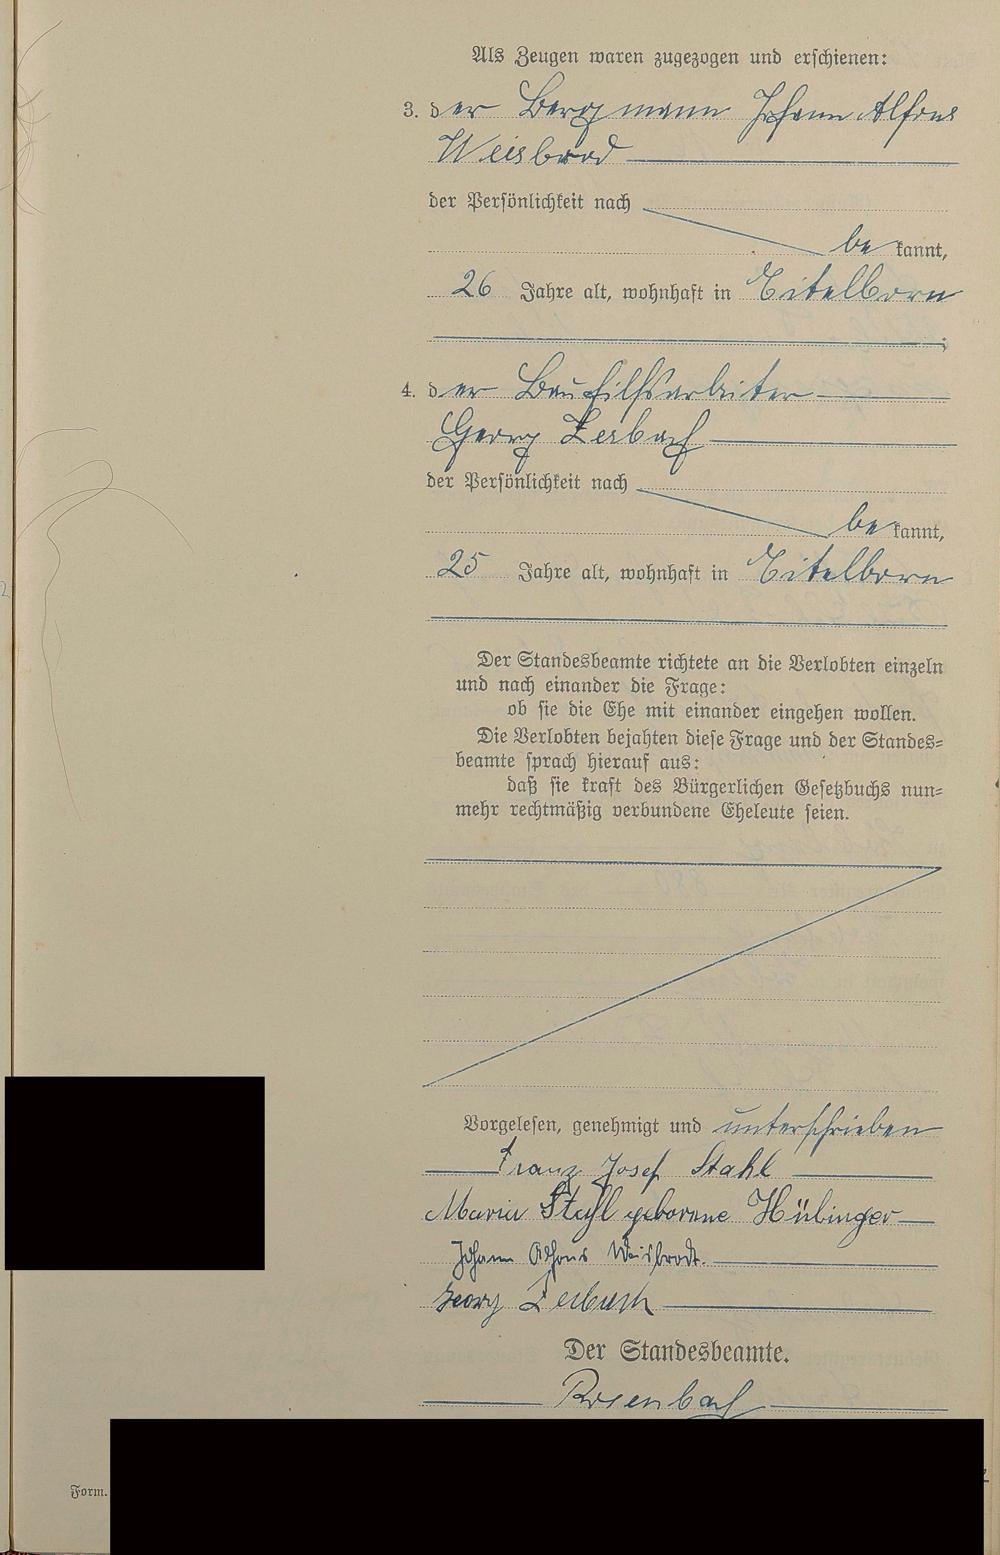 Als Zeugen waren zugezogen und erschienen:
3. der Bergmann Johann Alfons
Weisbrod
der Persönlichkeit nach
bekannt,
26 Jahre alt, wohnhaft in Eitelborn
;
4. der Bauhilfsarbeiter
Georg Leibach
der Persönlichkeit nach
bekannt,
25 Jahre alt, wohnhaft in Eitelborn
Der Standesbeamte richtete an die Verlobten einzeln
und nach einander die Frage:
ob sie die Ehe mit einander eingehen wollen.
Die Verlobten bejahten diese Frage und der Standes=
beamte sprach hierauf aus:
daß sie kraft des Bürgerlichen Gesetzbuchs nun=
mehr rechtmäßig verbundene Eheleute seien.
Vorgelesen, genehmigt und unterschrieben
Franz Josef Stahl
Maria Stahl geborene Hübinger
Johann Alfons Weisbrodt.
Georg
Der Standesbeamte.
Rosenbach
Form.